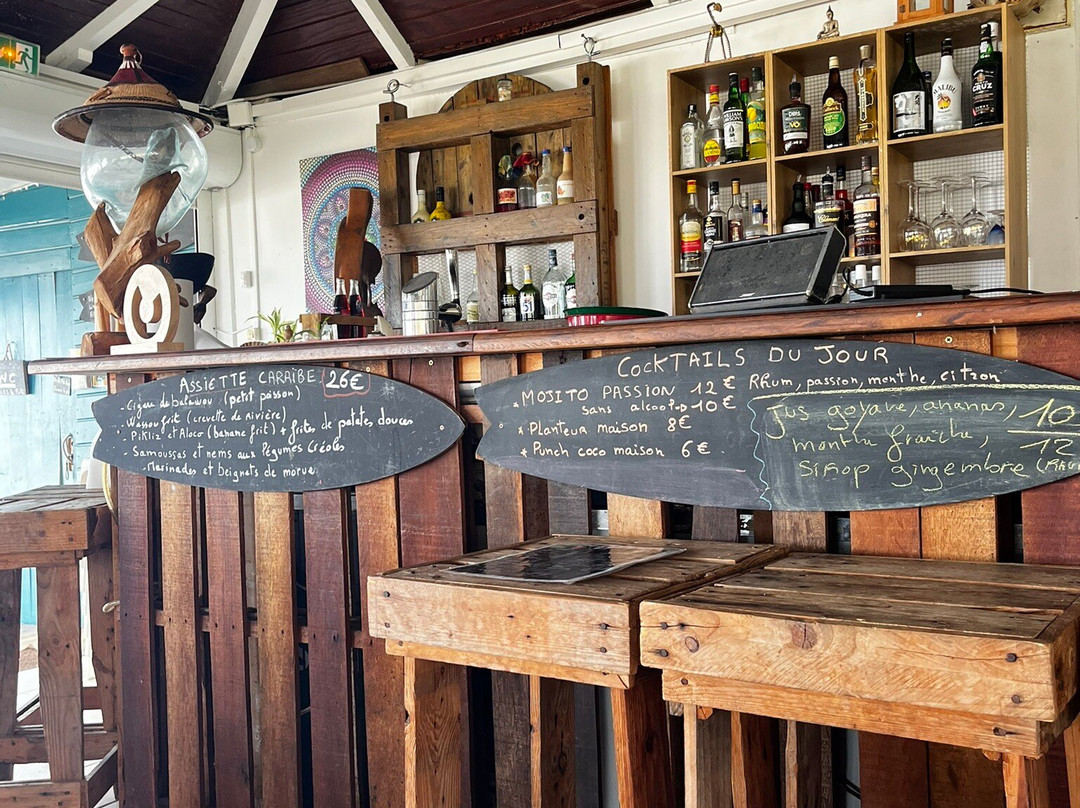 ASSIETTE CARAÏBE 26€
- Cigau de balawou (petit poisson)
- Wassou frit (crevette de rivière)
- Pikliz et Aloco (banane frit) + frites de patates douces
- Samoussas et nems aux légumes créoles
- Marinades et beignets de morue
COCKTAILS DU JOUR
* MOJITO PASSION 12€ Rhum, passion, menthe, citron
sans alcool → 10€
* Planteur maison 8€
* Punch coco maison 6€
Jus goyave, ananas, 10
menthe fraîche, 12
sirop gingembre
MALIBU
CRUZ